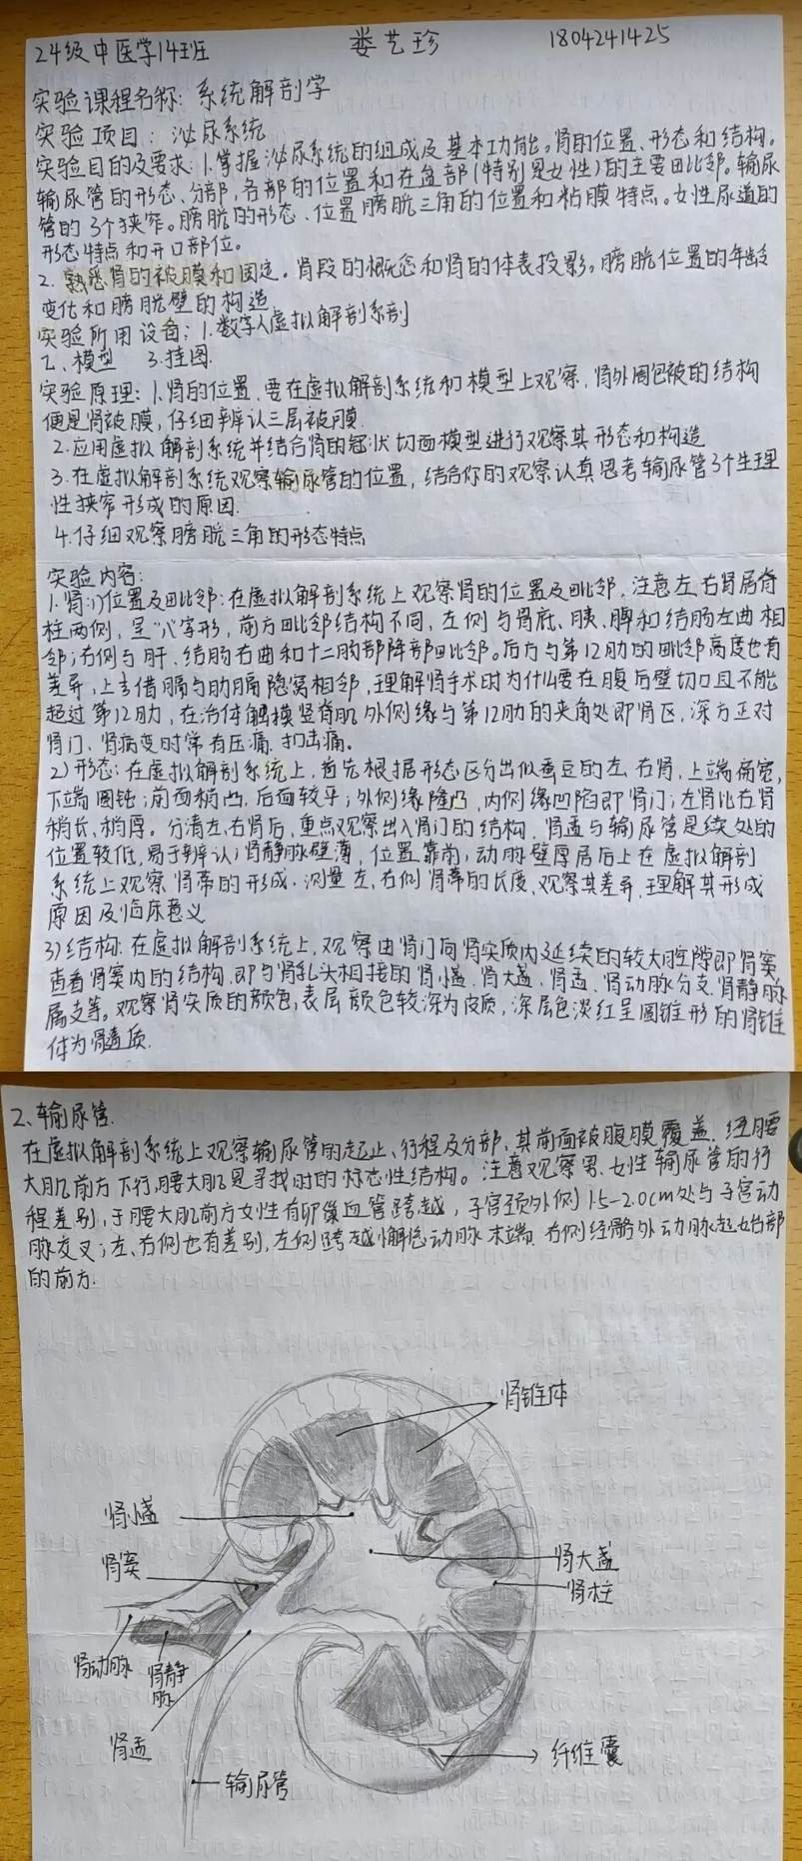 24级中医学14班 娄艺珍 1804241425
实验课程名称:系统解剖学
实验项目:泌尿系统
实验目的及要求:1.掌握泌尿系统的组成及基本功能。肾的位置、形态和结构。
输尿管的形态、分部,各部的位置和在盆部(特别是女性)的主要毗邻。输尿
管的3个狭窄。膀胱的形态、位置膀胱三角的位置和粘膜特点。女性尿道的
形态特点和开口部位。
2.熟悉肾的被膜和固定。肾段的概念和肾的体表投影。膀胱位置的年龄
变化和膀胱壁的构造
实验所用设备:1.数字人虚拟解剖系剖
2、模型 3.挂图.
实验原理:1.肾的位置.要在虚拟解剖系统和模型上观察,肾外周包被的结构
便是肾被膜,仔细辨认三层被膜.
2.应用虚拟解剖系统并结合肾的冠状切面模型进行观察其形态和构造
3.在虚拟解剖系统观察输尿管的位置,结合你的观察认真思考输尿管3个生理
性狭窄形成的原因.
4.仔细观察膀胱三角的形态特点
实验内容:
1.肾:1)位置及毗邻:在虚拟解剖系统上观察肾的位置及毗邻.注意左、右肾居脊
柱两侧,呈“八”字形,前方毗邻结构不同,左侧与胃底、胰、脾和结肠左曲相
邻;右侧与肝、结肠右曲和十二肠部降部毗邻。后方与第12肋的毗邻高度也有
差异,上方借膈与肋膈隐窝相邻,理解肾手术时为什么要在腹后壁切口且不能
超过第12肋,在活体触摸竖脊肌外侧缘与第12肋的夹角处即肾区,深方正对
肾门、肾病变时常有压痛、扣击痛。
2)形态:在虚拟解剖系统上,首先根据形态区分出似蚕豆的左、右肾,上端扁宽,
下端圆钝;前面稍凸,后面较平;外侧缘隆凸,内侧缘凹陷即肾门;左肾比右肾
稍长、稍厚。分清左、右肾后,重点观察出入肾门的结构.肾盂与输尿管是续处的
位置较低,易于辨认;肾静脉壁薄,位置靠前,动脉壁厚居后上在虚拟解剖
系统上观察肾蒂的形成.测量左、右侧肾蒂的长度、观察其差异、理解其形成
原因及临床意义
3)结构:在虚拟解剖系统上,观察由肾门向肾实质内延续的较大腔隙即肾窦.
查看肾窦内的结构.即与肾乳头相接的肾小盏、肾大盏、肾盂、肾动脉分支.肾静脉
属支等。观察肾实质的颜色,表层颜色较深为皮质,深层色淡红呈圆锥形的肾锥
体为髓质.
2、输尿管.
在虚拟解剖系统上观察输尿管的起止、行程及分部,其前面被腹膜覆盖.经腰
大肌前方下行,腰大肌是寻找时的标志性结构。注意观察男、女性输尿管的行
程差别,于腰大肌前方女性有卵巢血管跨越,子宫颈外侧1.5-2.0cm处与子宫动
脉交叉;左、右侧也有差别,左侧跨越髂总动脉末端.右侧经髂外动脉起始部
的前方.
肾锥体
肾小盏
肾窦
肾大盏
肾柱
肾动脉
肾静
脉
肾盂
纤维囊
输尿管